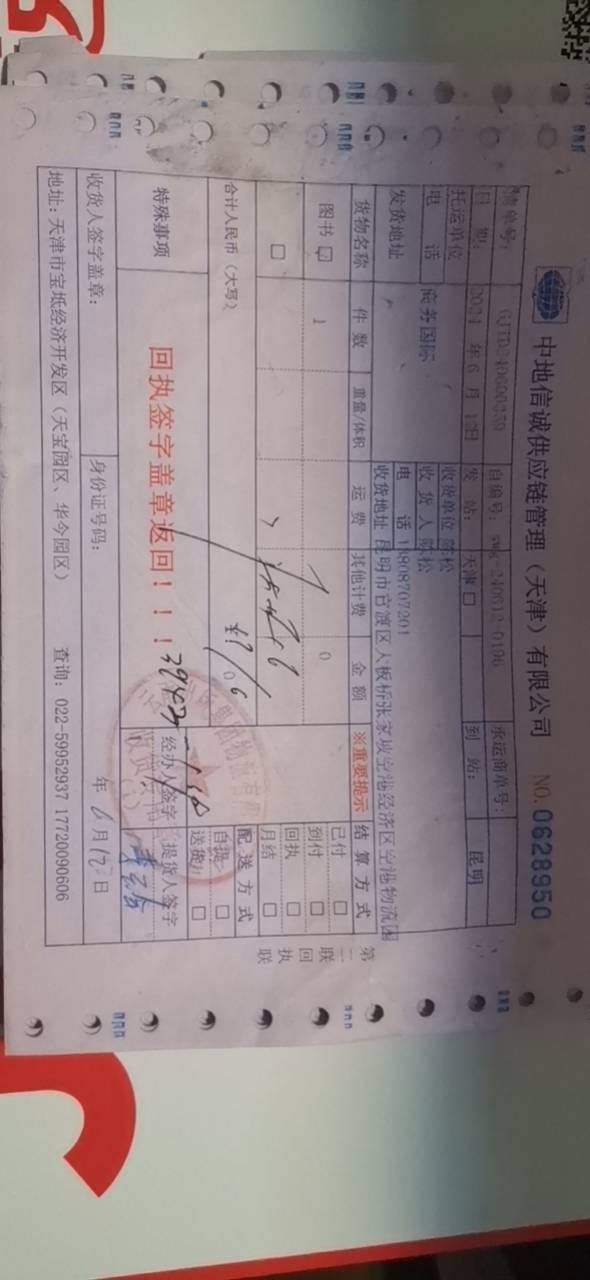 中地信诚供应链管理（天津）有限公司 NO. 0628950
清单号： GJTD240600039 自编号： swk-240612-0106 承运商单号：
日 期： 2024 年 6 月 12日 发 站： 天津 到 站： 昆明
托运单位 商务国际 收货单位 陈松
电 话 收 货 人 陈松
发货地址 电 话
收货地址 昆明市官渡区大板桥张家坡空港经济区空港物流园
货物名称 件 数 重量/体积 运 费 其他计费 金 额 ※重要提示 结 算 方 式
图书 1 0 已付
到付
回执
月结
合计人民币（大写） 配 送 方 式
自提
送货
特殊事项 回执签字盖章返回！！！ 经办人签字 提货人签字
收货人签字盖章： 身份证号码： 年 6 月 12 日
地址：天津市宝坻经济开发区（天宝园区、华今园区） 查询：022-59952937 17720090606
第二联 回执联